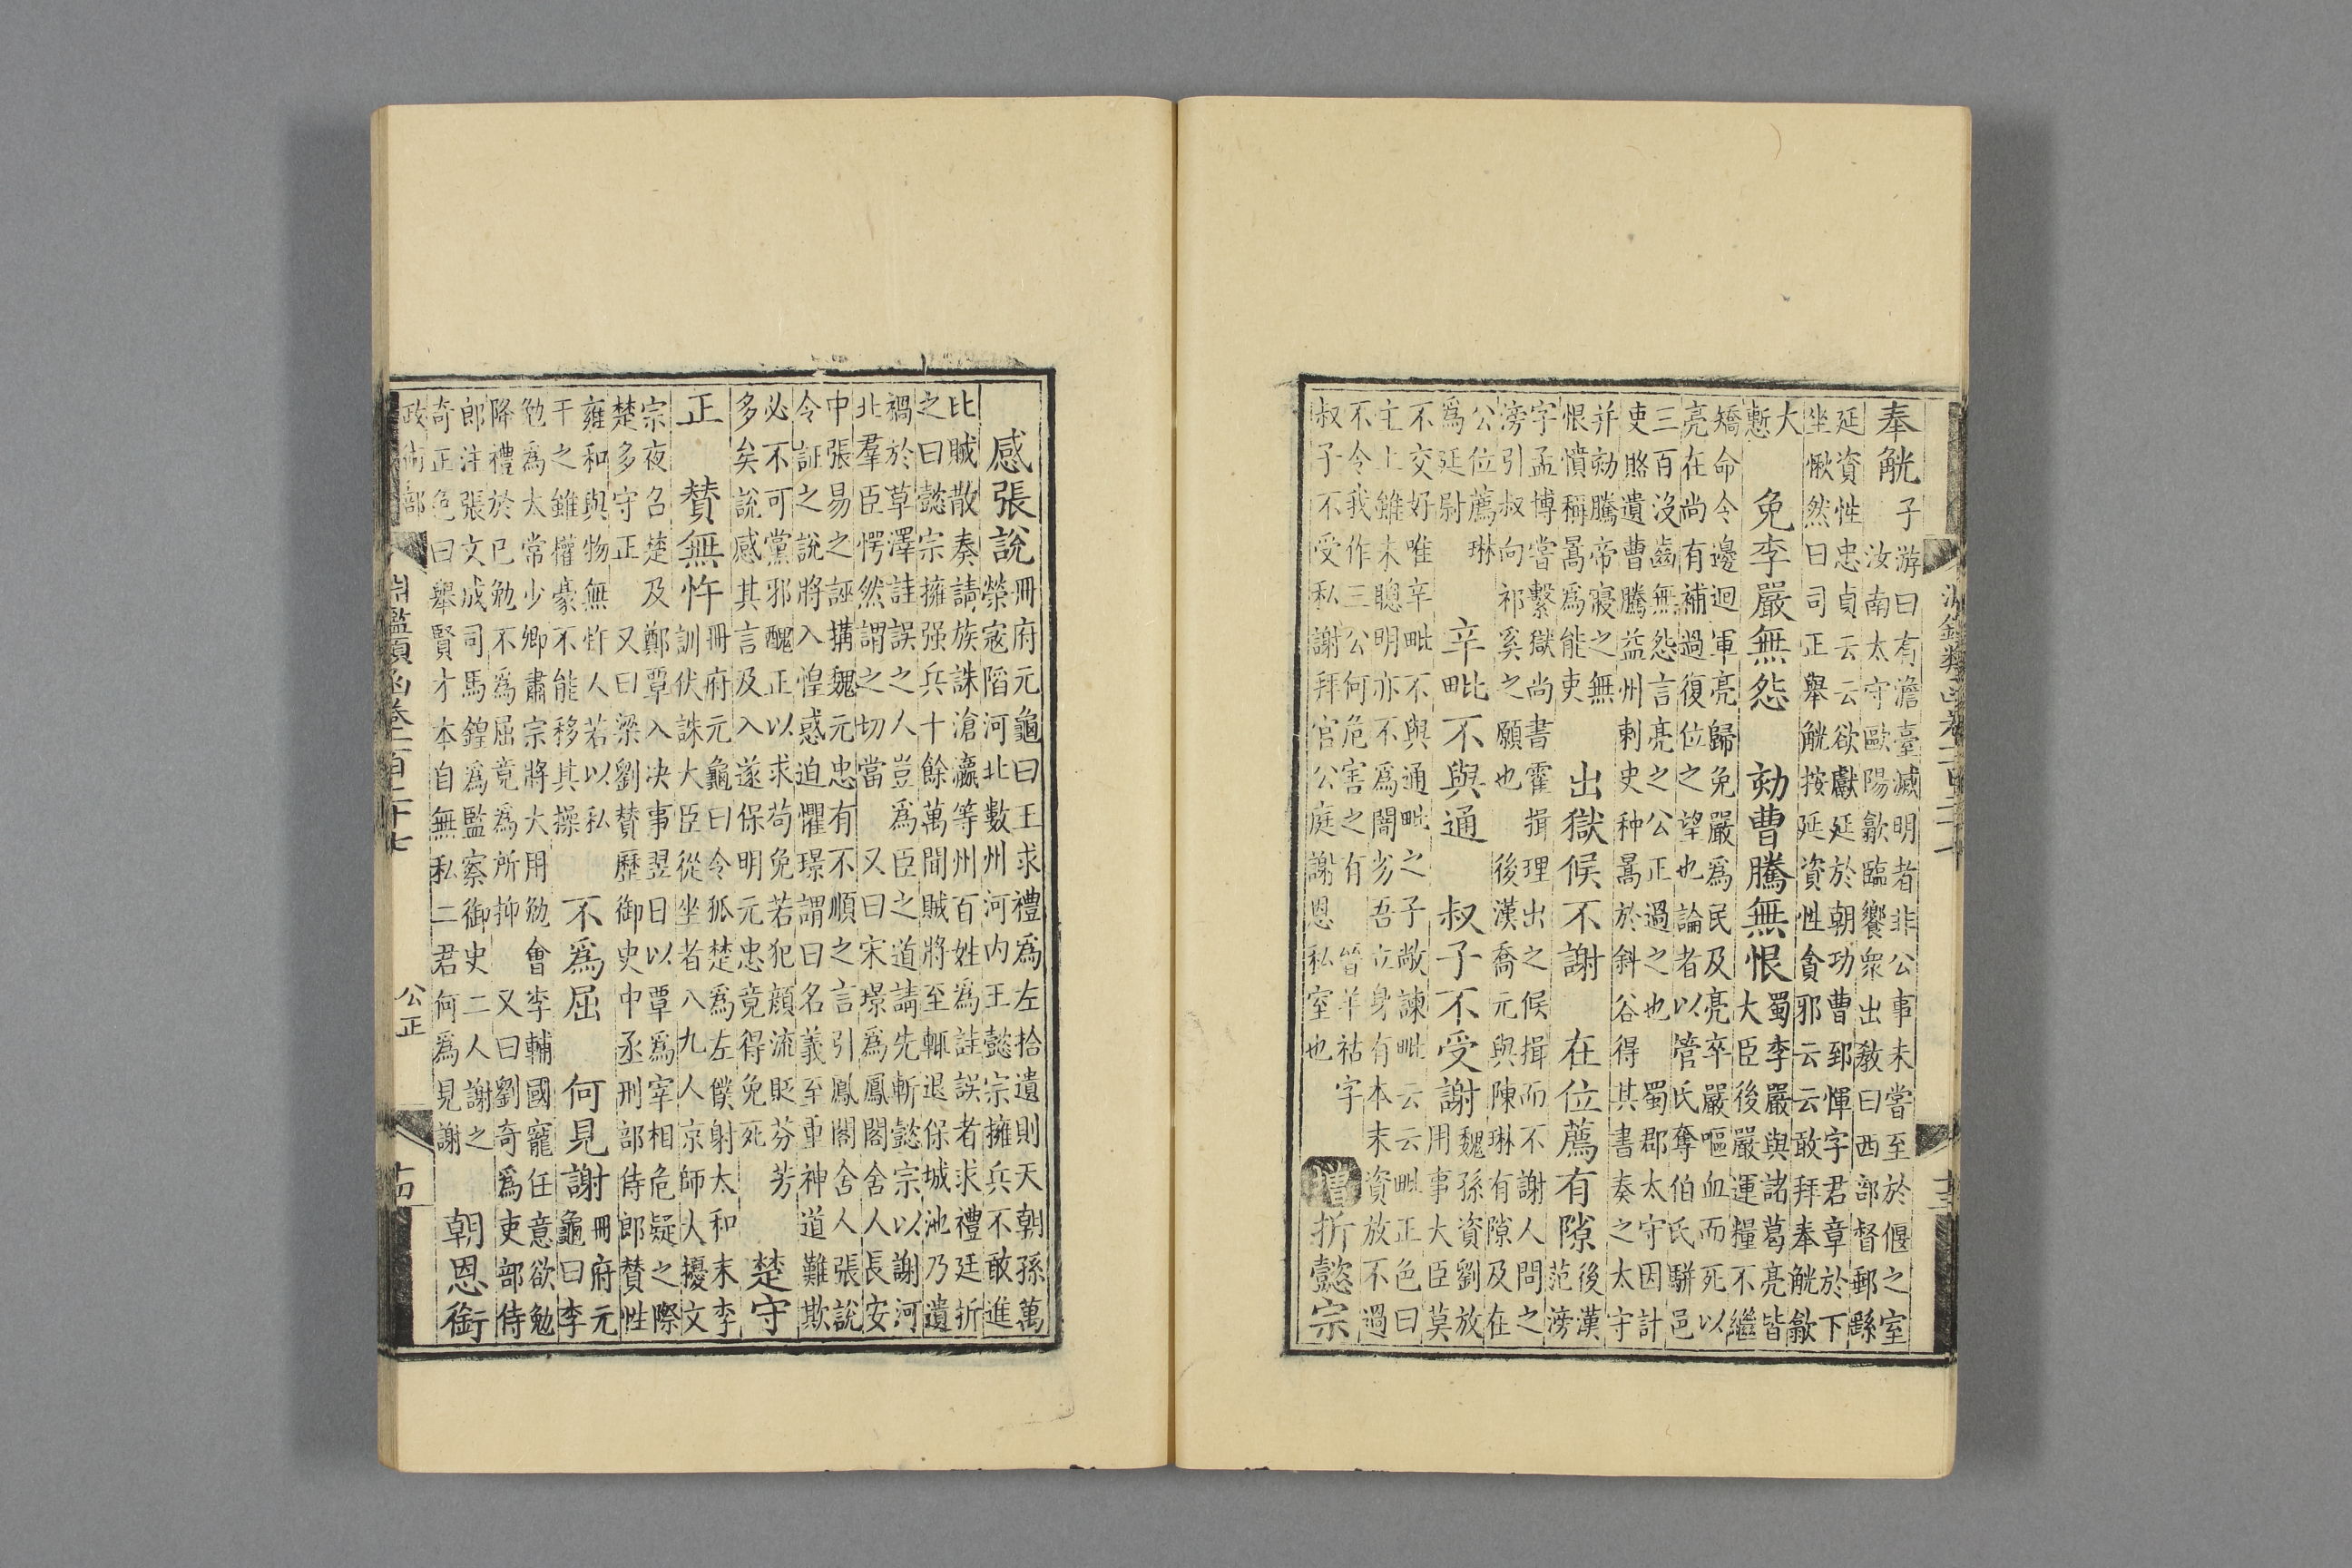 奉觥
子游曰有澹臺滅明者非公事未嘗至於偃之室
汝南太守歐陽歙臨饗衆出教曰西部督郵繇
延資性忠貞云云欲獻延於朝功曹郅惲字君章於下
坐愀然曰司正舉觥按延資性貪邪云云敢拜奉觥歙
大
慙
免李嚴無怨　劾曹騰無恨
蜀李嚴與諸葛亮皆
大臣後嚴運糧不繼
矯命令邊迴軍亮歸免嚴爲民及亮卒嚴嘔血而死以
亮在尚有補過復位之望也論者以管氏奪伯氏駢邑
三百沒齒無怨言亮之公正過之也　蜀郡太守因計
吏賂遺曹騰益州刺史种暠於斜谷得其書奏之太守
并劾騰帝寢之無
恨憤稱暠爲能吏
出獄候不謝　在位薦有隙
後漢
范滂
字孟博嘗繫獄尚書霍揖理出之候揖而不謝人問之
滂引叔向祁奚之願也　後漢喬元與陳琳有隙及在
公位薦琳
爲廷尉
辛毗不與通　叔子不受謝
魏孫資劉放
用事大臣莫
不交好唯辛毗不與通毗之子敞諫毗云云毗正色曰
主上雖未聰明亦不爲闇劣吾立身有本末資放不過
不令我作三公何危害之有　晉羊祜字
叔子不受私謝拜官公庭謝恩私室也
增折懿宗
感張說
冊府元龜曰王求禮爲左拾遺則天朝孫萬
榮寇陷河北數州河内王懿宗擁兵不敢進
比賊散奏請族誅滄瀛等州百姓爲詿誤者求禮廷折
之曰懿宗擁强兵十餘萬聞賊將至輒退保城池乃遺
禍於草澤詿誤之人豈爲臣之道請先斬懿宗以謝河
北羣臣愕然謂之切當　又曰宋璟爲鳳閣舍人長安
中張易之誣搆魏元忠有不順之言引鳳閣舍人張說
令証之說將入惶惑迫懼璟謂曰名義至重神道難欺
必不可黨邪醜正以求苟免若犯顔流貶芬芳
多矣說感其言及入遂保明元忠竟得免死
楚守
正　賛無忤
冊府元龜曰令狐楚爲左僕射太和末李
訓伏誅大臣從坐者八九人京師大擾文
宗夜召楚及鄭覃入决事翌日以覃爲宰相危疑之際
楚多守正　又曰梁劉賛歷御史中丞刑部侍郎賛性
雍和與物無忤人若以私
干之雖權豪不能移其操
不爲屈　何見謝
冊府元
龜曰李
勉爲太常少卿肅宗將大用勉會李輔國寵任意欲勉
降禮於已勉不爲屈竟爲所抑　又曰劉奇爲吏部侍
郎注張文成司馬鍠爲監察御史二人謝之
奇正色曰舉賢才本自無私二君何爲見謝
朝恩銜
政術部
淵鑑類函卷一百二十七
公正
十四